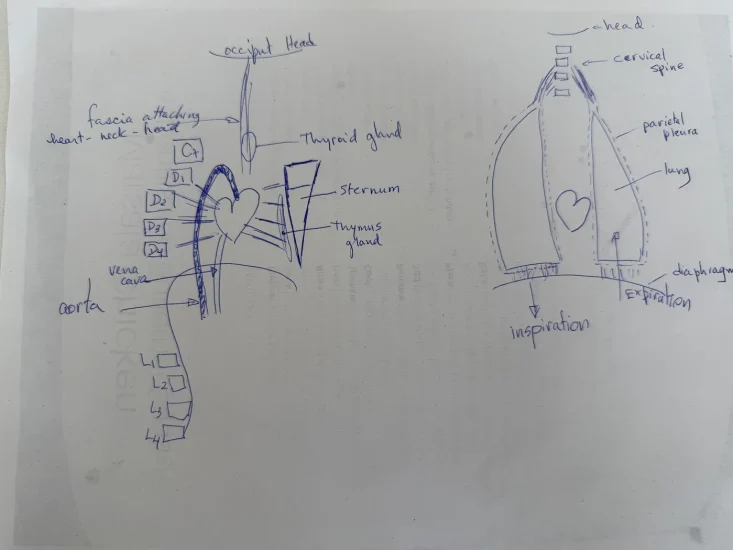 occiput Head
fascia attaching
heart-neck-head
Thyroid gland
C7
D1
D2
D3
D4
sternum
Thymus
gland
vena
cava
aorta
L1
L2
L3
L4
head
cervical
spine
parietal
pleura
lung
diaphragm
Expiration
inspiration